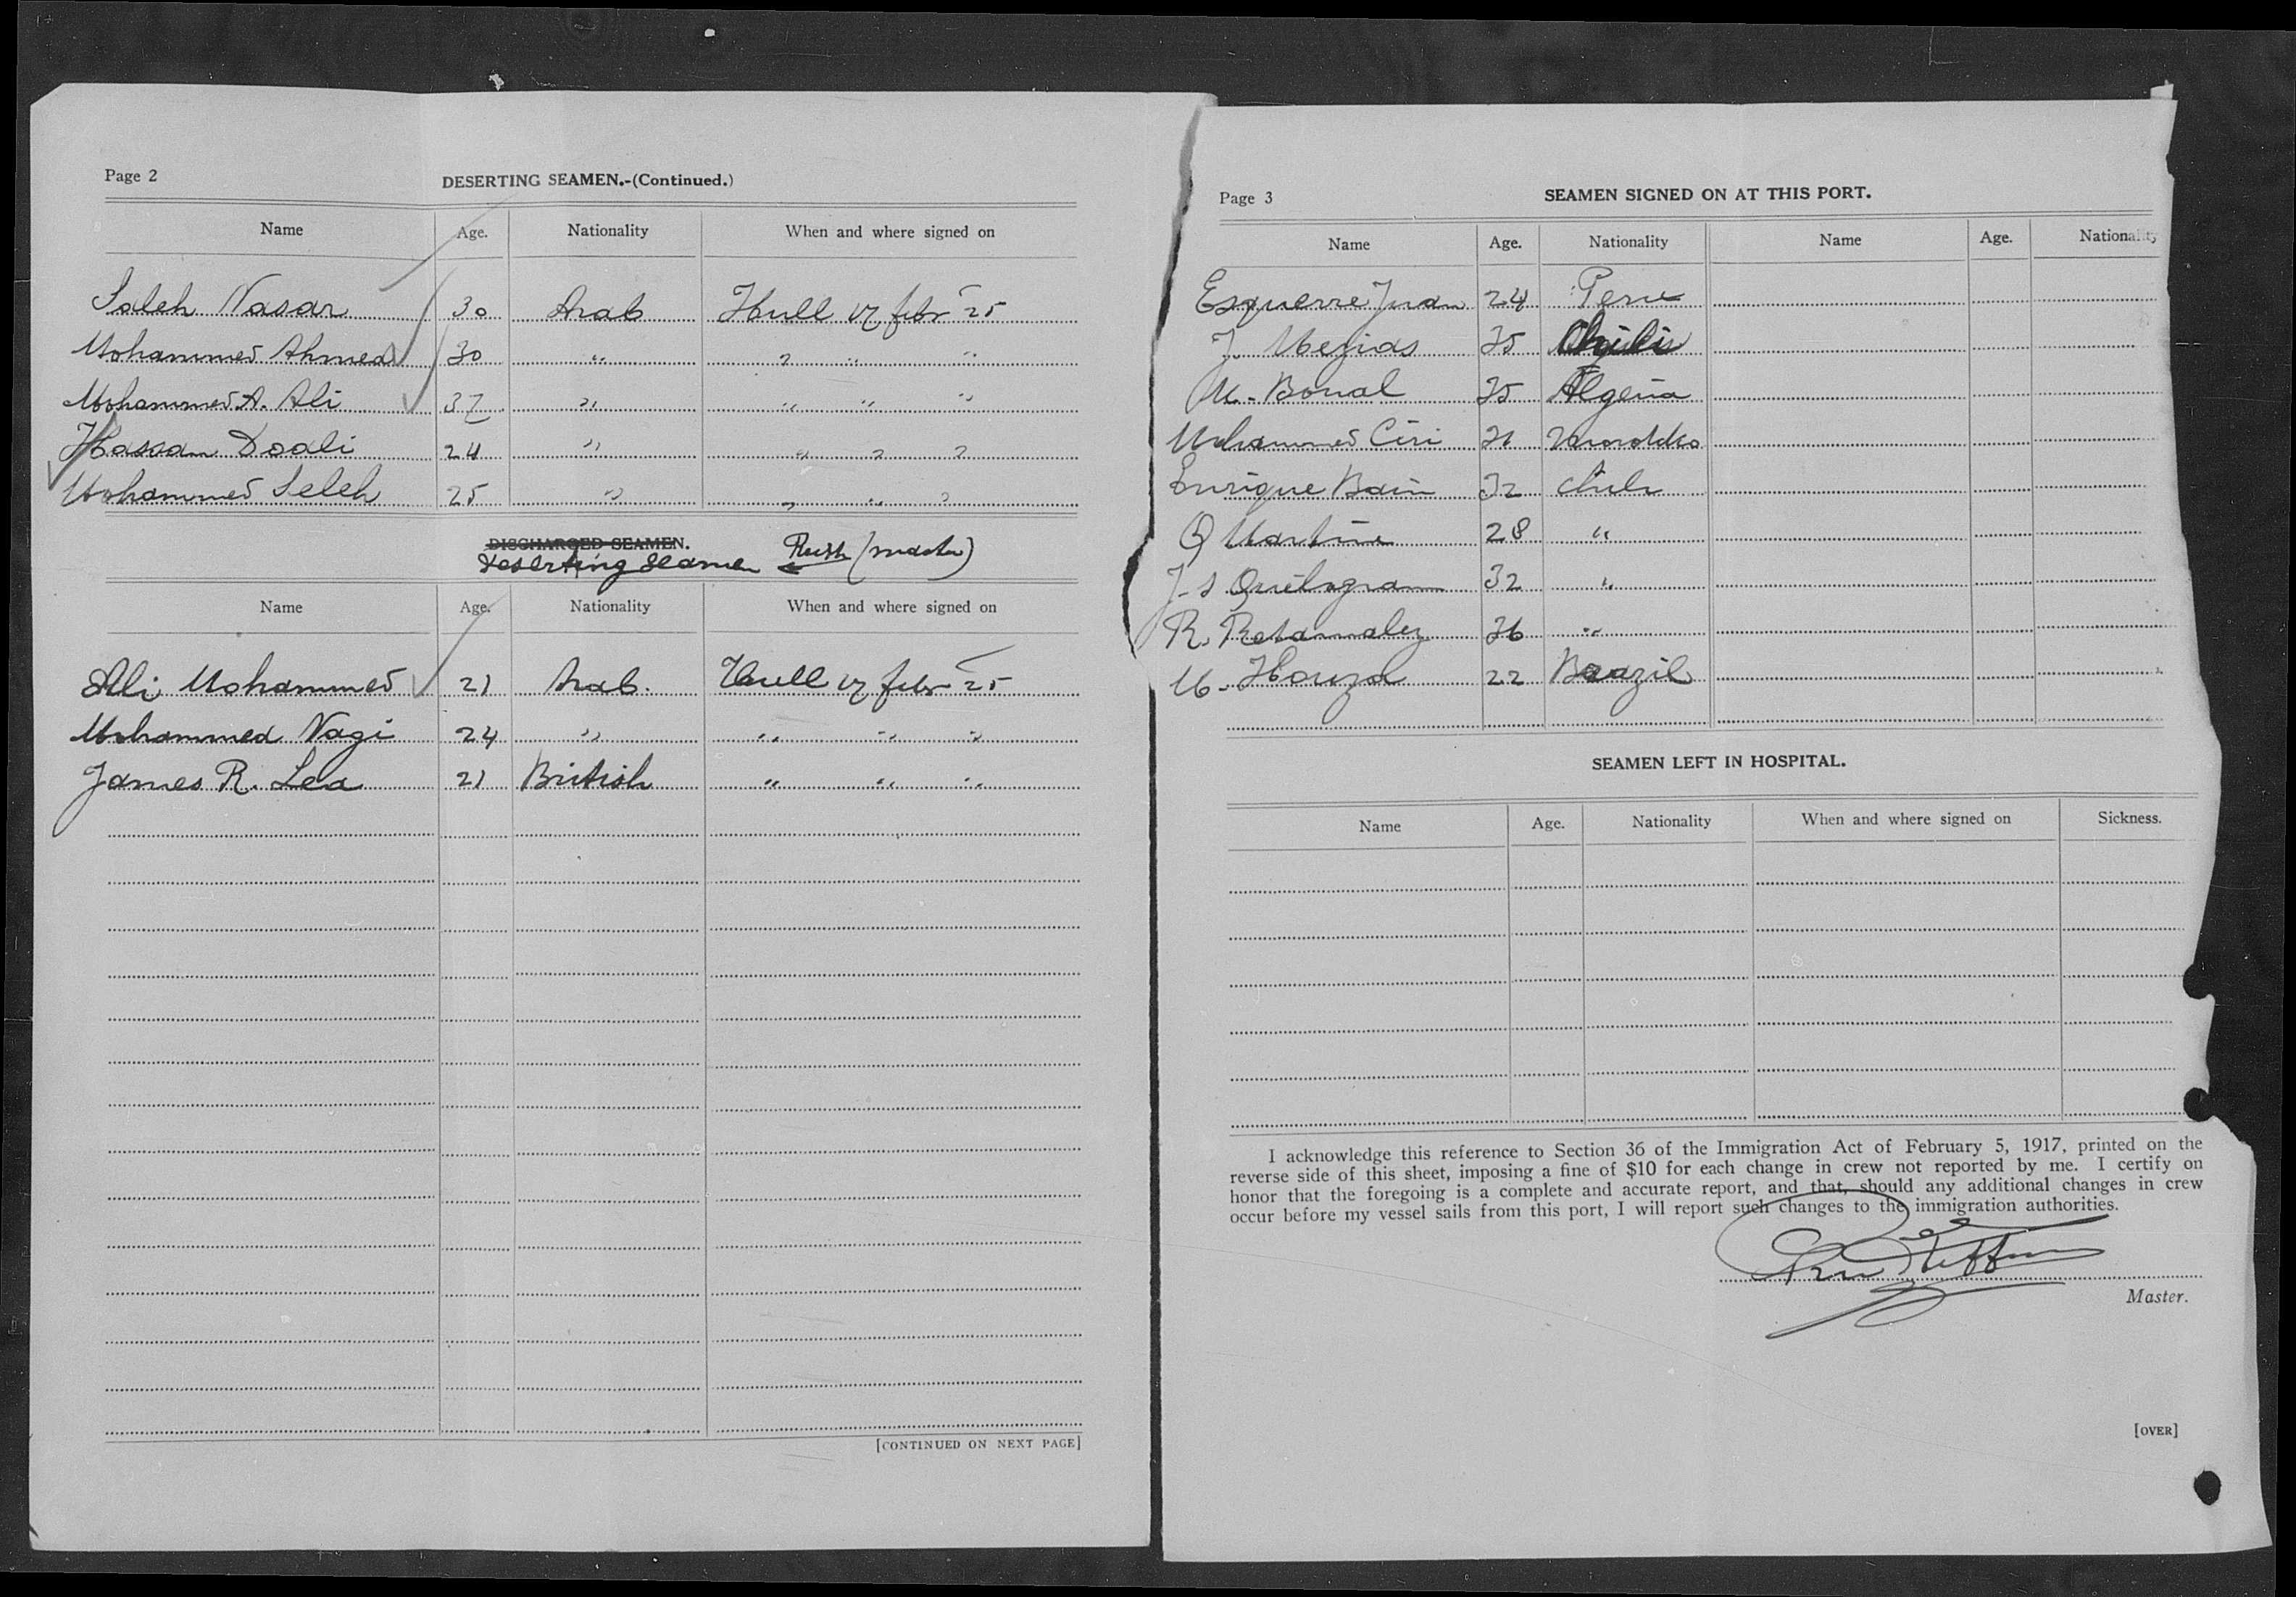 Page 2
DESERTING SEAMEN.-(Continued.)
Name Age. Nationality When and where signed on
Saleh Nasar 30 Arab Hull 17 febr 25
Mohammed Ahmed 30 " " " "
Mohammed A. Ali 37 " " " "
Hassan Doali 24 " " " "
Mohammed Saleh 25 " " " "
DISCHARGED SEAMEN.
Deserting Seamen (master)
Name Age. Nationality When and where signed on
Ali Mohammed 21 Arab. Hull 17 febr 25
Mohammed Nagi 24 " " " "
James R. Lea 21 British " " "
[CONTINUED ON NEXT PAGE]
Page 3
SEAMEN SIGNED ON AT THIS PORT.
Name Age. Nationality Name Age. Nationality
Esquerre Juan 24 Peru
J. Mezias 35 Chili
M. Bonal 35 Algeria
Mohammed Ciri
Enrique Bain 32 Chile
O Martine 28 "
J. S 32 "
R. Retamalez 36 "
M. Houza 22 Brazil
SEAMEN LEFT IN HOSPITAL.
Name Age. Nationality When and where signed on Sickness.
I acknowledge this reference to Section 36 of the Immigration Act of February 5, 1917, printed on the
reverse side of this sheet, imposing a fine of $10 for each change in crew not reported by me. I certify on
honor that the foregoing is a complete and accurate report, and that, should any additional changes in crew
occur before my vessel sails from this port, I will report such changes to the immigration authorities.
Master.
[OVER]